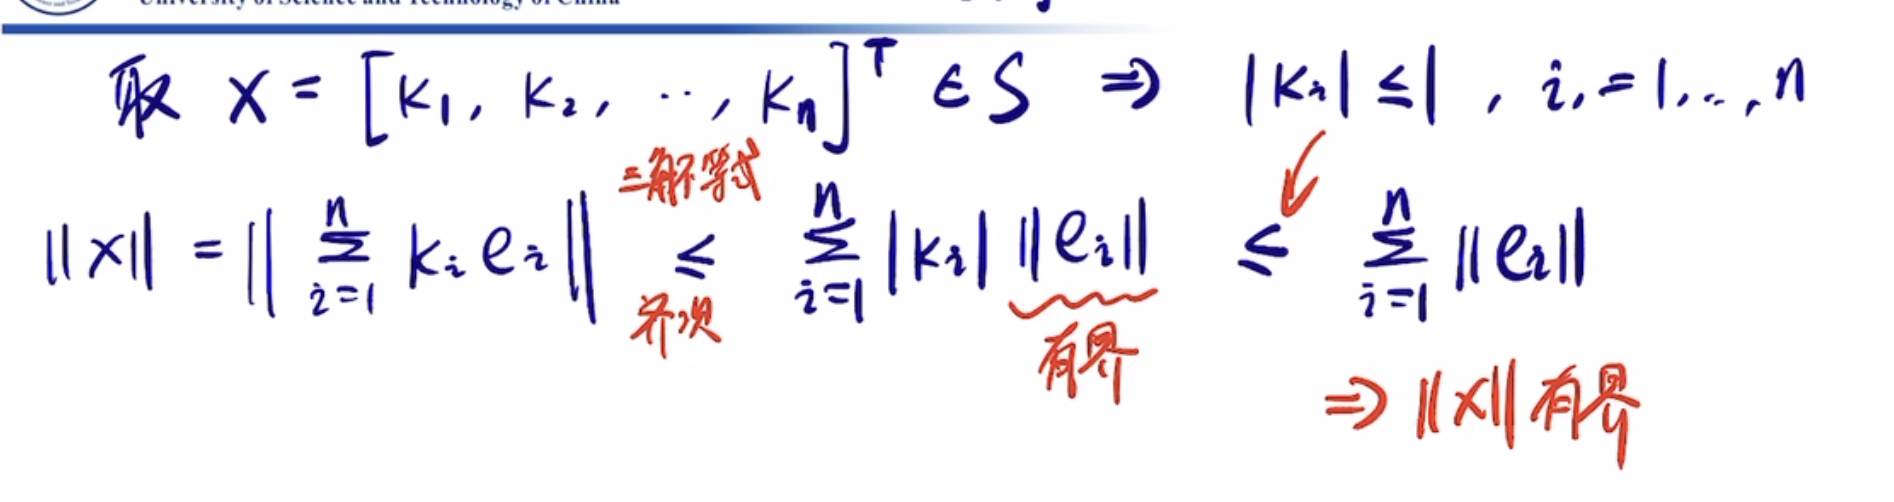 University of Science and Technology of China
取 X = [k₁, k₂, ··, kₙ]ᵀ ∈ S ⇒ |kᵢ| ≤ 1, i, = 1, ..., n
三角不等式
||X|| = || ∑ᵢ₌₁ⁿ kᵢ eᵢ || ≤ ∑ᵢ₌₁ⁿ |kᵢ| ||eᵢ|| ≤ ∑ᵢ₌₁ⁿ ||eᵢ||
齐次
有界
⇒ ||X|| 有界